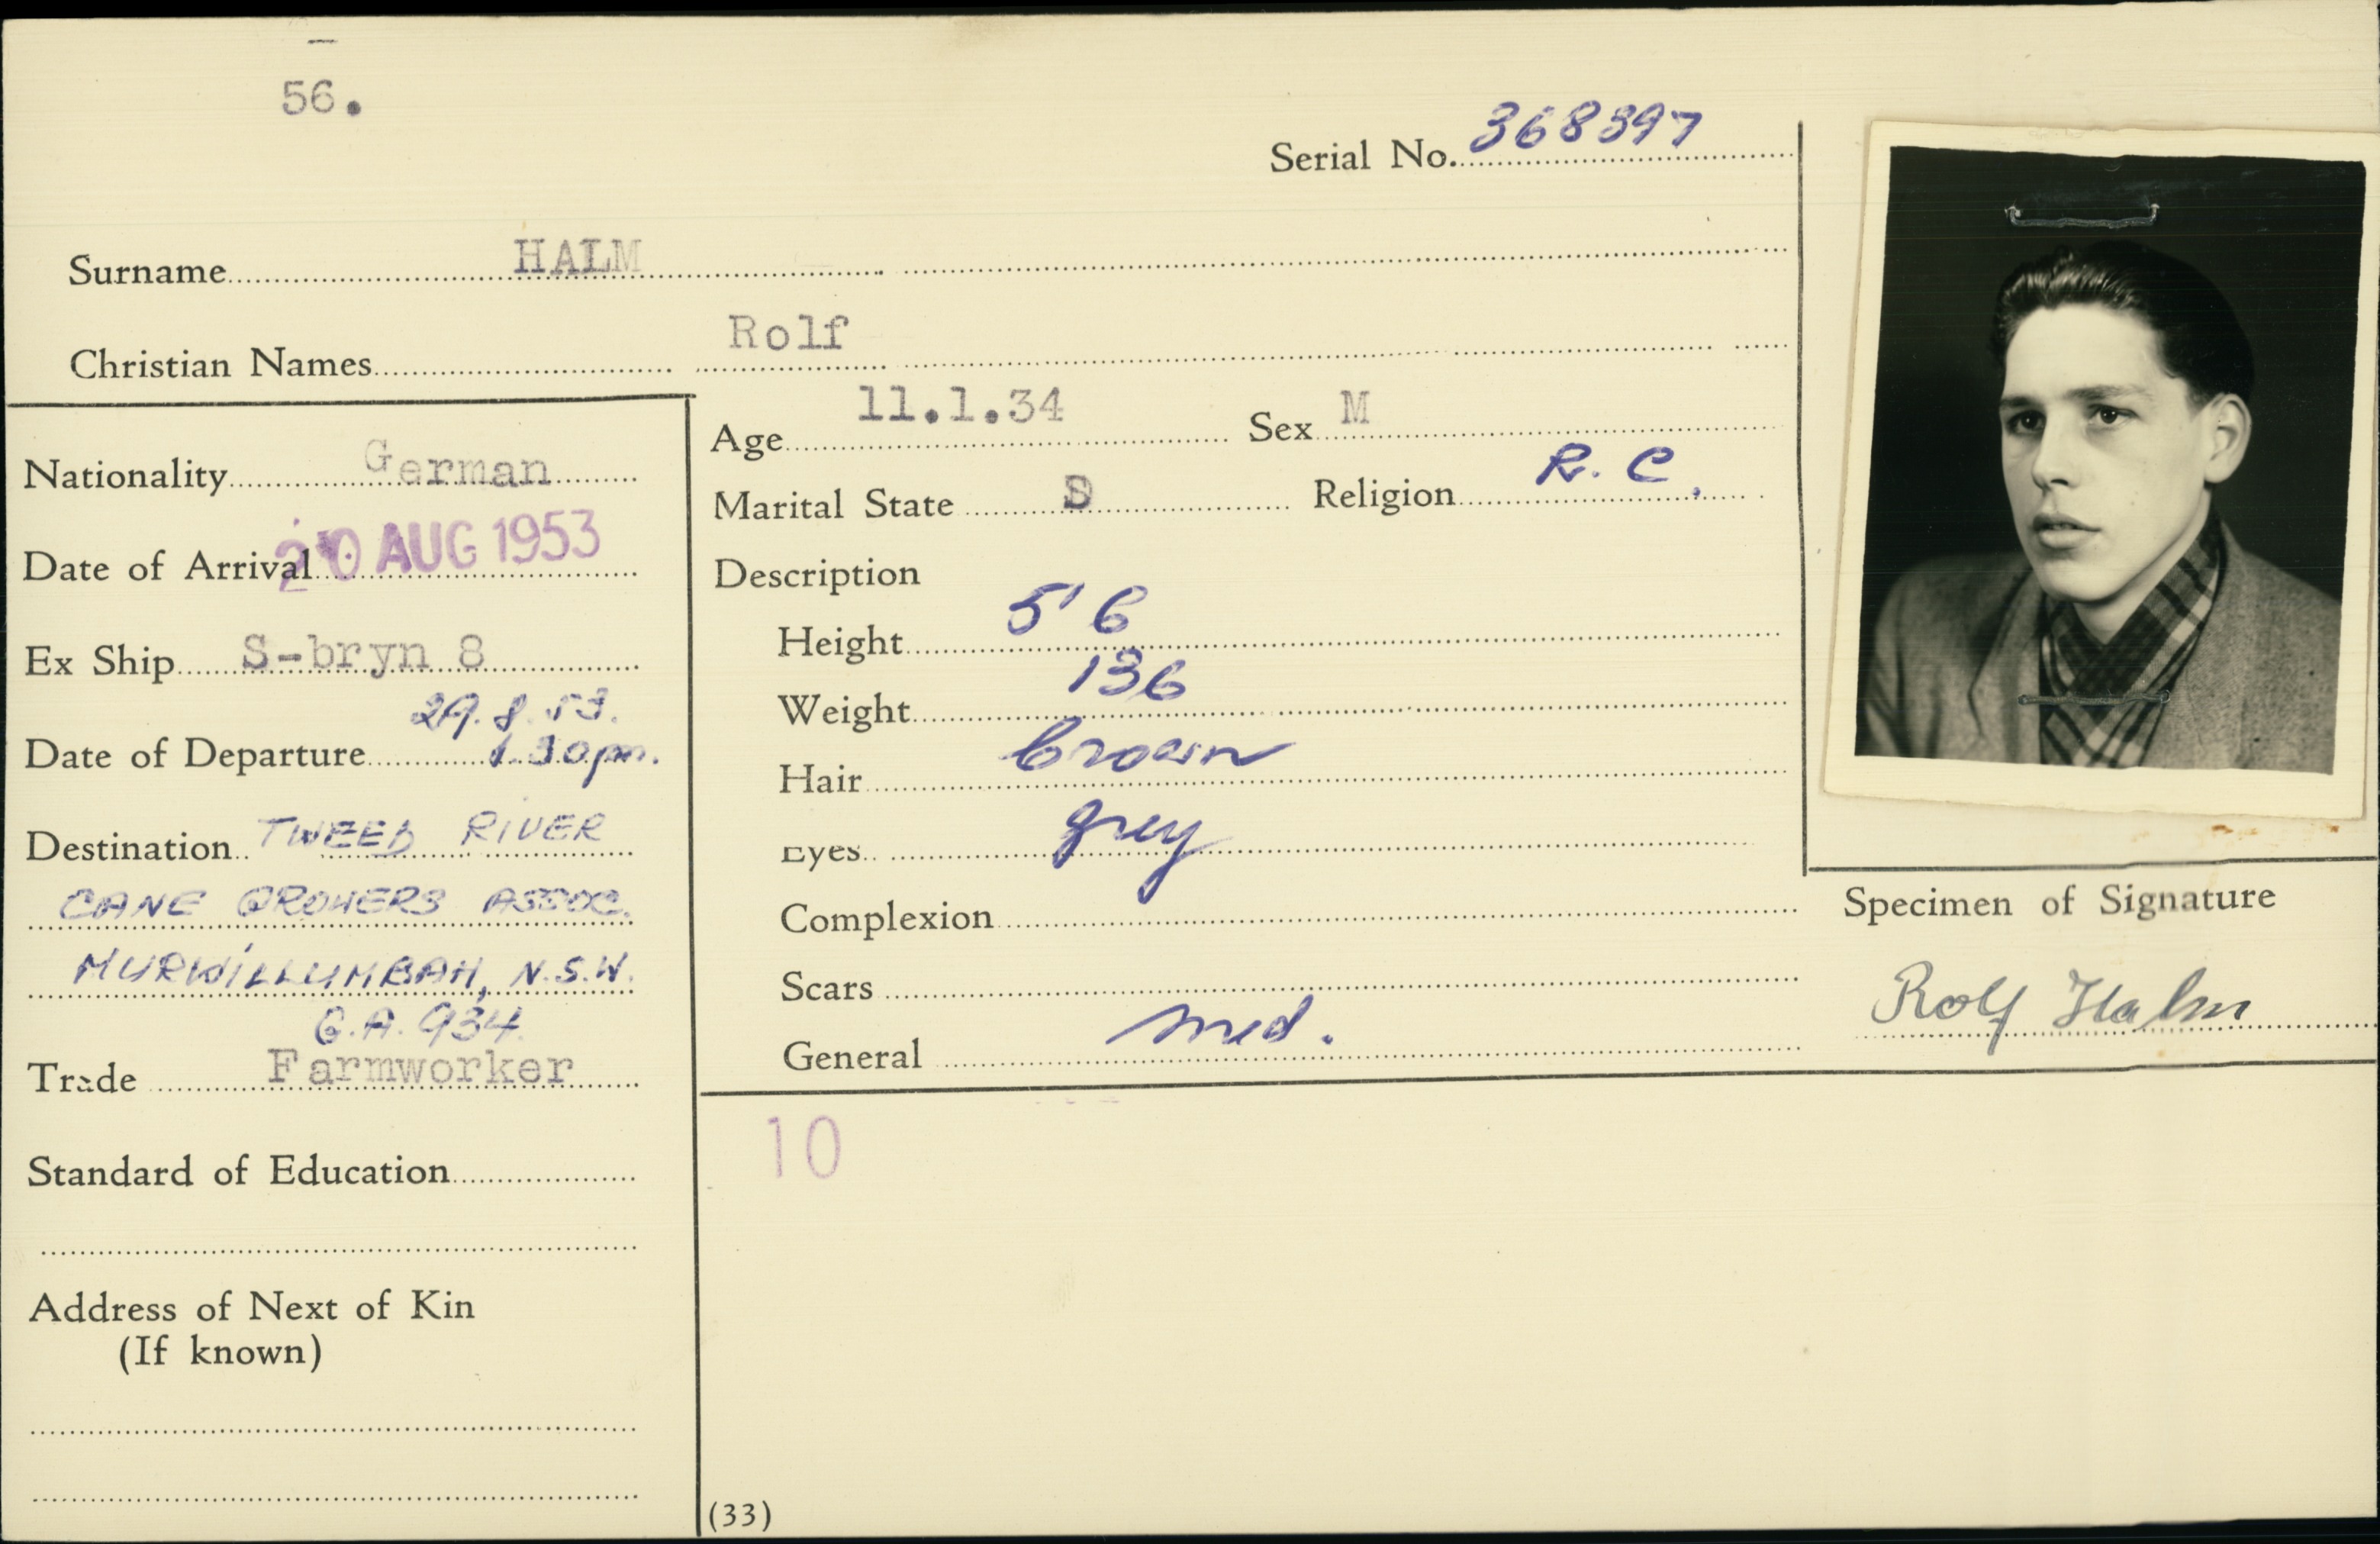 56.
Serial No. 368397
Surname HALM
Christian Names Rolf
Nationality German
Date of Arrival 20 AUG 1953
Ex Ship S-bryn 8
Date of Departure 29.8.53.
1.30pm.
Destination TWEED RIVER
CANE GROWERS ASSOC.
MURWILLUMBAH, N.S.W.
G.A. 934
Trade Farmworker
Standard of Education
Address of Next of Kin
(If known)
Age 11.1.34 Sex M
Marital State S Religion R. C.
Description
Height 5' 6
Weight 136
Hair brown
Eyes grey
Complexion
Scars
General med.
10
(33)
Specimen of Signature
Rolf Halm